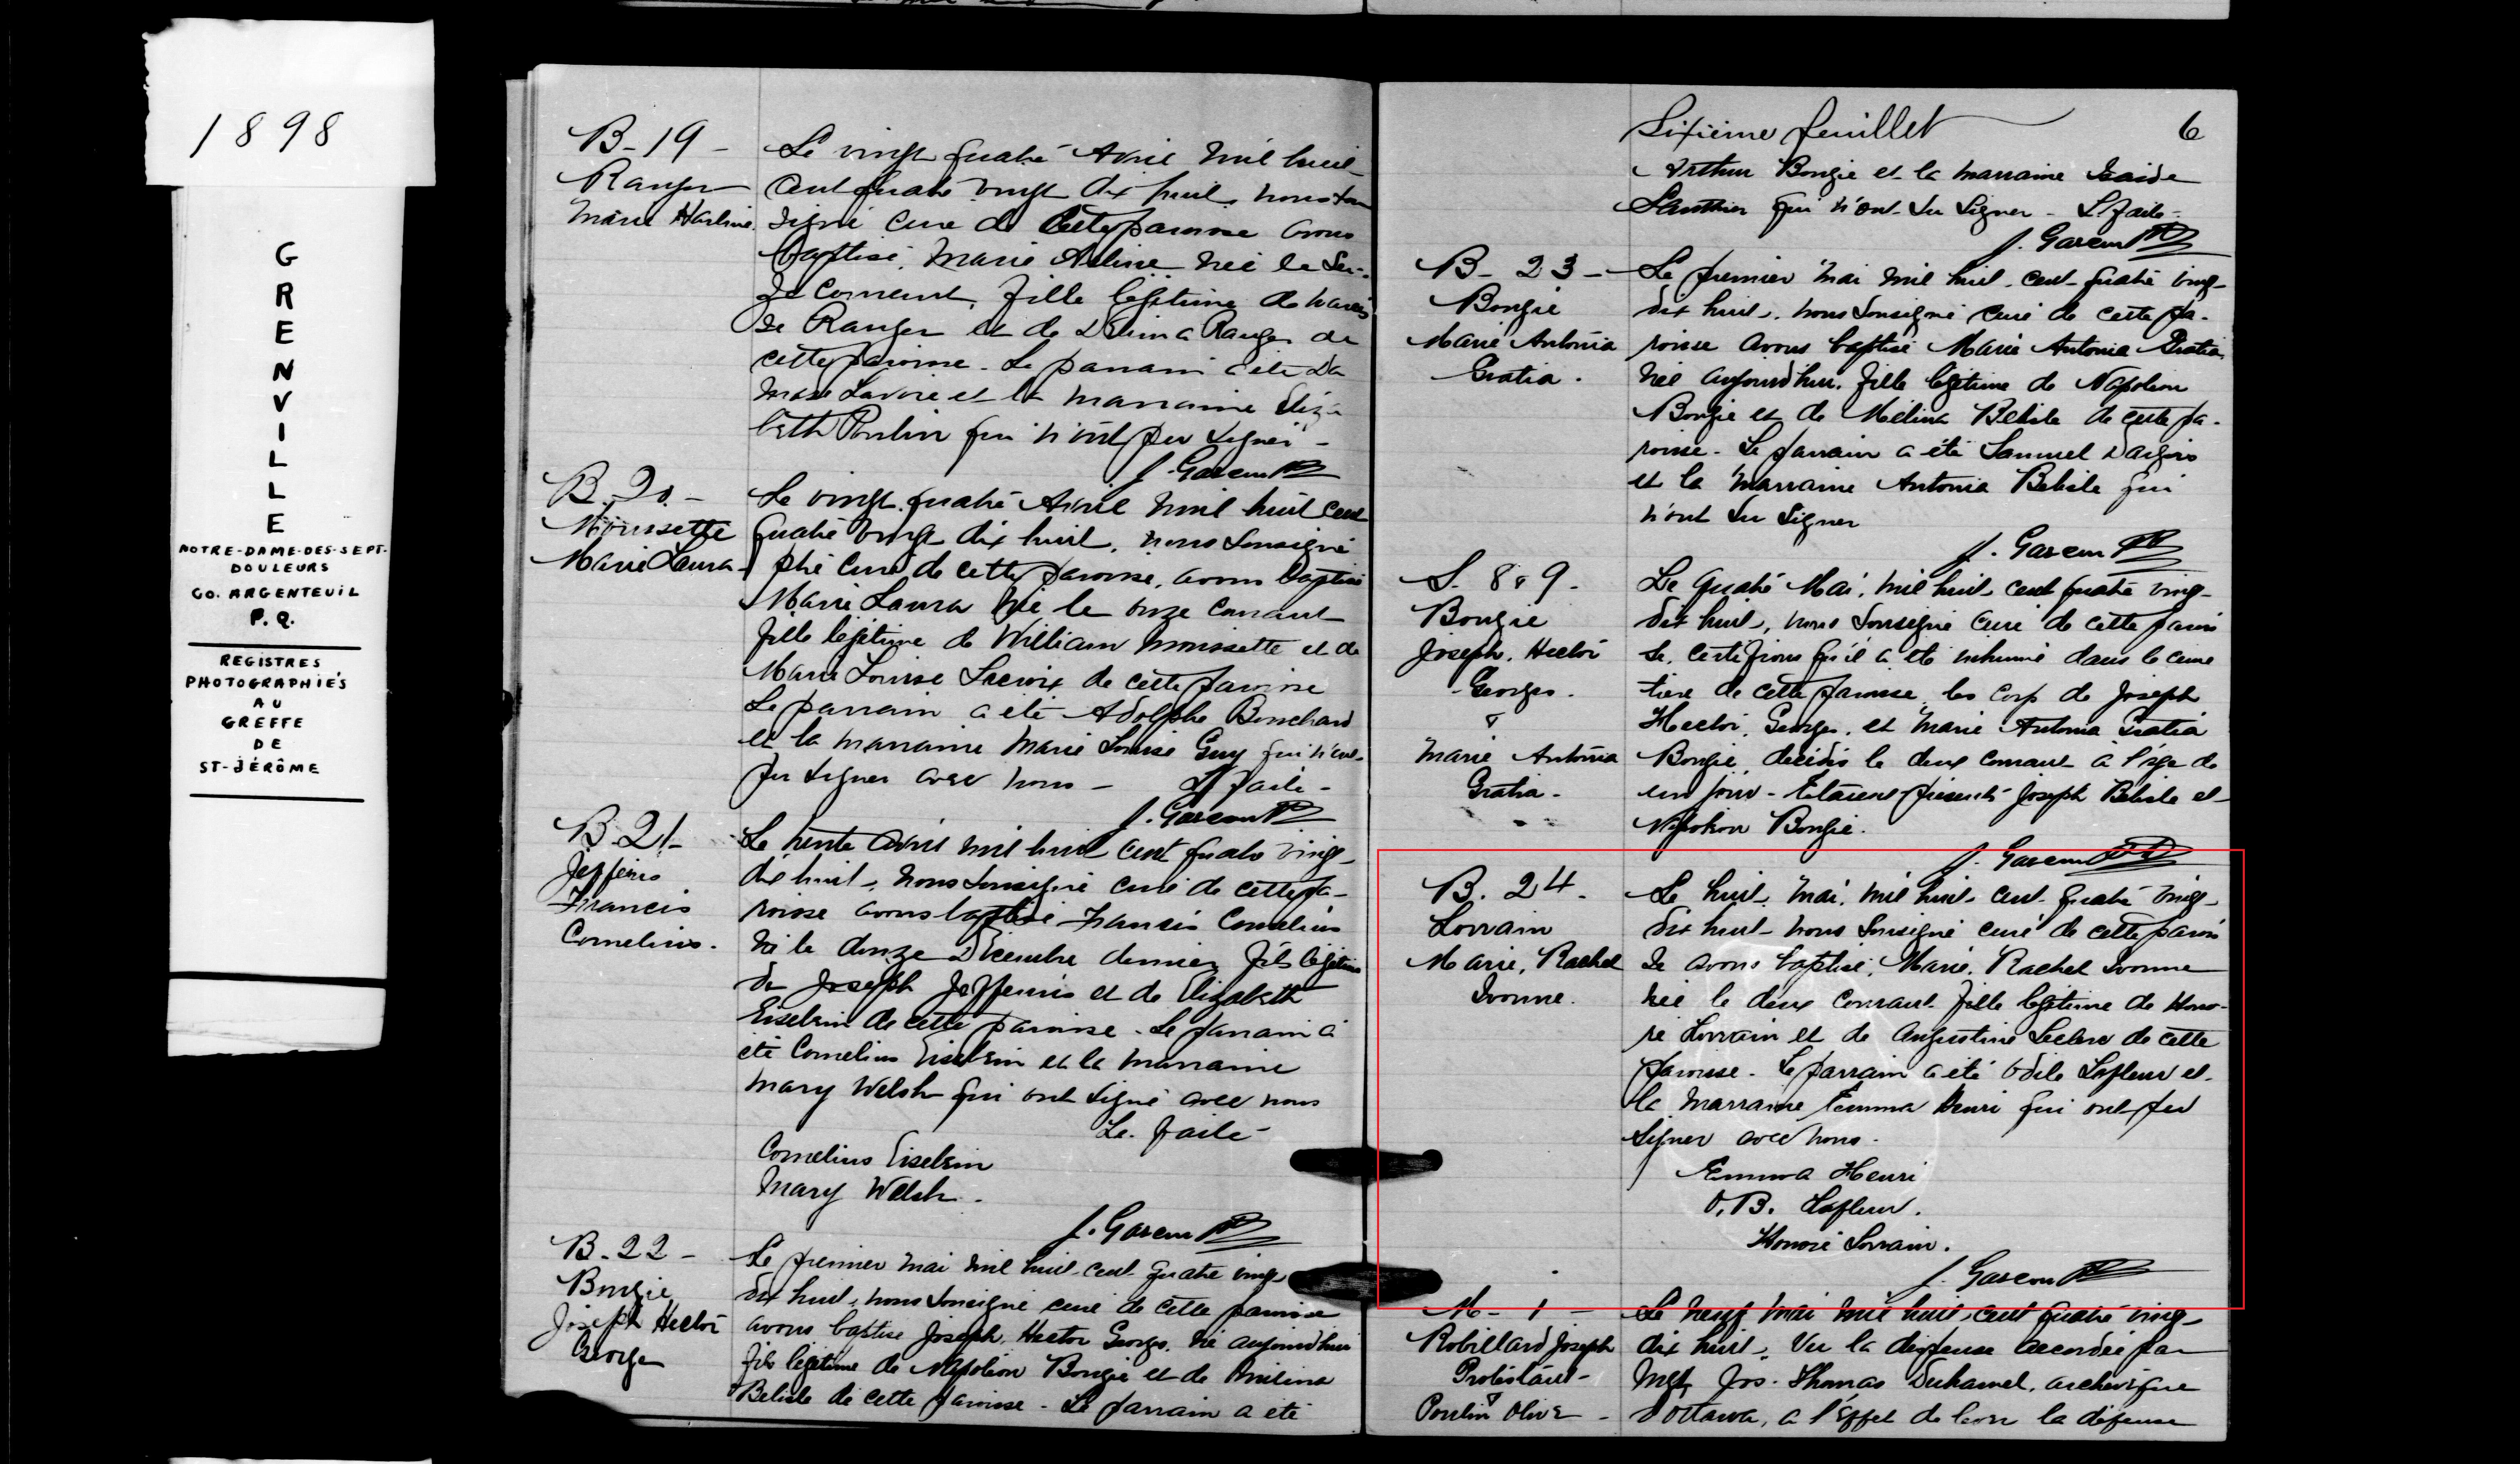 1898
G
R
E
N
V
I
L
L
E
NOTRE-DAME-DES-SEPT-
DOULEURS
CO. ARGENTEUIL
P. Q.
REGISTRES
PHOTOGRAPHIÉS
AU
GREFFE
DE
ST-JÉRÔME
B-19-
Ranger
Marie
Le vingt quatre Avril mil huit
cent quatre vingt dix huit, nous sous
signé curé de cette paroisse avons
baptisé, Marie née le sei-
ze courant, fille légitime de Narcis
se Ranger et de Délima Ranger de
cette paroisse. Le parrain a été Da
mase Lavoie et la marraine Eliza
beth Poulin qui n'ont pu signer -
J. Gascon Ptre
B. 20 -
Morissette
Marie Laura
Le vingt quatre Avril mil huit cent
quatre vingt dix huit, nous soussigné
ptre curé de cette paroisse, avons baptisé
Marie Laura née le onze courant
fille légitime de William Morissette et de
Marie Louise Lacroix de cette paroisse
Le parrain a été Adolphe Bouchard
et la marraine Marie Louise Guy qui n'ont
pu signer avec nous -
J. Gascon Ptre
B. 21-
Jefferies
Francis
Cornelius.
Le trente avril mil huit cent quatre vingt
dix huit, nous soussigné curé de cette pa-
roisse avons baptisé Francis Cornelius
né le douze Décembre dernier fils légitime
de Joseph Jefferies et de Elizabeth
de cette paroisse. Le parrain a
été Cornelius et la marraine
Mary Welsh qui ont signé avec nous
Cornelius
Mary Welsh.
J. Gascon Ptre
B-22-
Bougie
Joseph Hector
George
Le premier mai mil huit cent quatre vingt
dix huit, nous soussigné curé de cette paroisse
avons baptisé Joseph, Hector Georges, né aujourd'hui
fils légitime de Napoléon Bougie et de
Belisle de cette paroisse. Le parrain a été
Sixième feuillet 6
Arthur Bougie et la marraine
qui n'ont su signer -
J. Gascon Ptre
B-23-
Bougie
Marie Antonia
Gratia.
Le premier mai mil huit cent quatre vingt
dix huit, nous soussigné curé de cette pa-
roisse avons baptisé Marie Antonia Gratia,
née aujourd'hui, fille légitime de Napoléon
Bougie et de Mélina Belisle de cette pa-
roisse. Le parrain a été Samuel
et la marraine Antonia Belisle qui
n'ont su signer
J. Gascon Ptre
S. 8 & 9-
Bougie
Joseph, Hector
Georges.
&
Marie Antonia
Gratia-
Le quatre Mai, mil huit cent quatre vingt
dix huit, nous soussigné curé de cette parois
se, certifions qu'il a été inhumé dans le cime
tière de cette paroisse, les corps de Joseph
Hector, Georges, et Marie Antonia Gratia
Bougie, décédés le deux courant à l'âge de
un jour - Etaient présents Joseph Belisle et
Napoléon Bougie.
J. Gascon Ptre
B. 24.
Lorrain
Marie, Rachel
Ivonne.
Le huit, mai, mil huit cent quatre vingt
dix huit nous soussigné curé de cette parois
se avons baptisé, Marie, Rachel Ivonne
née le deux courant fille légitime de Hono-
ré Lorrain et de Augustine Leclerc de cette
paroisse. Le parrain a été Odile Lafleur et
la marraine Emma Henri qui ont pu
signer avec nous.
Emma Henri
O. B. Lafleur.
Honoré Lorrain.
J. Gascon Ptre
M-1-
Robillard Joseph
Protestant-
&
Poulin Olive-
Le neuf mai mil huit cent quatre vingt
dix huit, Vu la dispense accordée par
Mgr Jos. Thomas Duhamel, archevêque
d'Ottawa, à l'effet de lever la défense